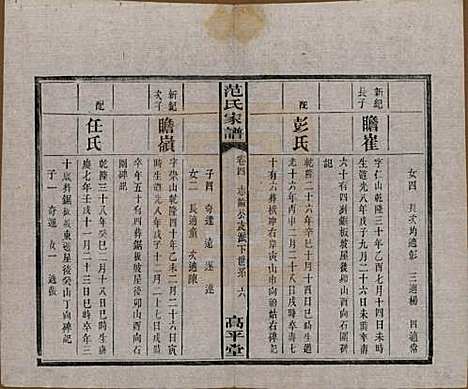 女四 長次均適彭 三適楊 四適常
新紀長子 瞻崔 字仁山乾隆三十年乙酉七月十四日亥時
生道光八年戊子九月二十六日未時卒年
六十有四葬鋸板坡屋後山西向石碑
記
配 彭氏 乾隆二十六年辛巳十月十四日巳時生道
光十六年丙申二月二十八日戌時卒年七
十有六葬橫冲右岸寅山申向胎姑右石碑
記
范氏家譜
卷四
高平堂
子四 奇達 遠 遂 連
女二 長適董 次適陳
新紀次子 瞻嶺 字崇山乾隆四十年乙未二月二十六日寅
時生道光八年戊子十一月二十七日戌時
卒年五十有四葬鋸板坡屋後卯山酉向石
圍碑記
配 任氏 乾隆三十八年癸巳二月十八日辰時生嘉
慶七年壬戌十一月二十三日巳時卒年三
十歲葬鋸板坡東邊屋後癸山丁向碑記
子一 奇運 女一 適張